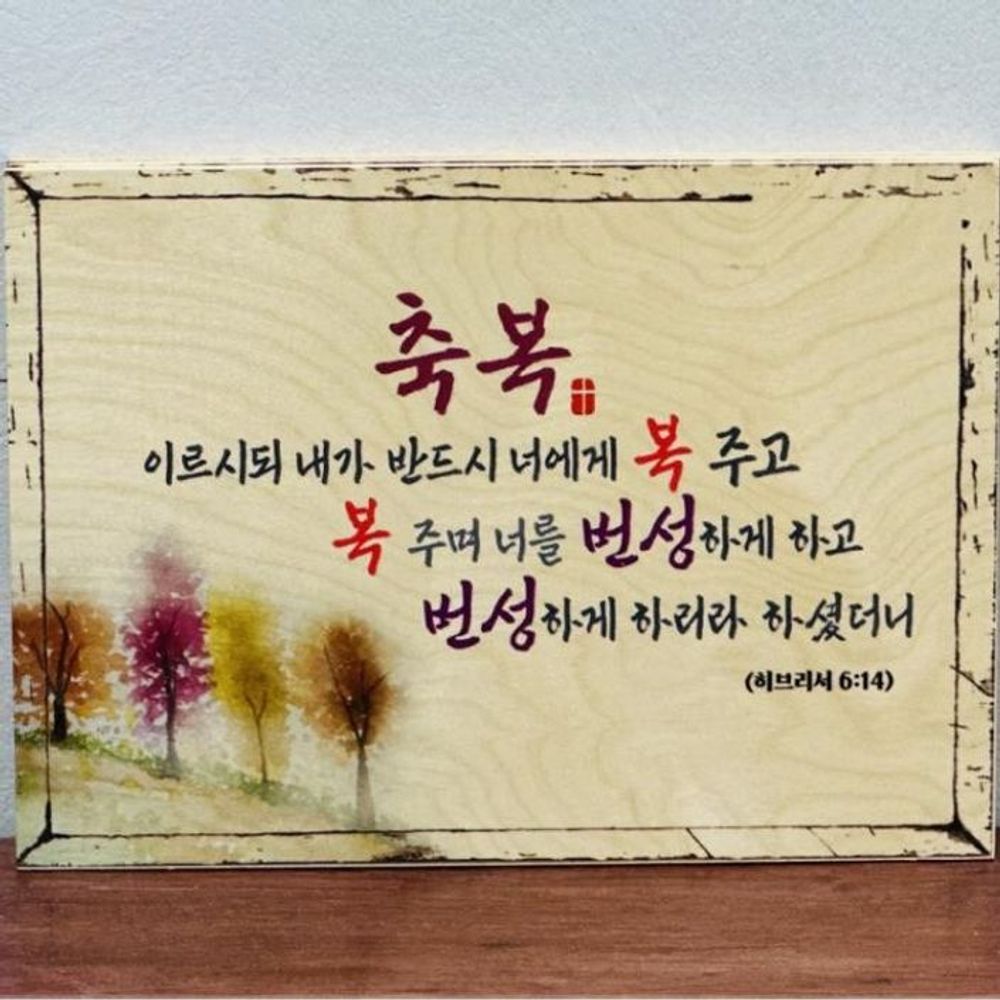 축복
이르시되 내가 반드시 너에게 복 주고
복 주며 너를 번성하게 하고
번성하게 하리라 하셨더니
(히브리서 6:14)